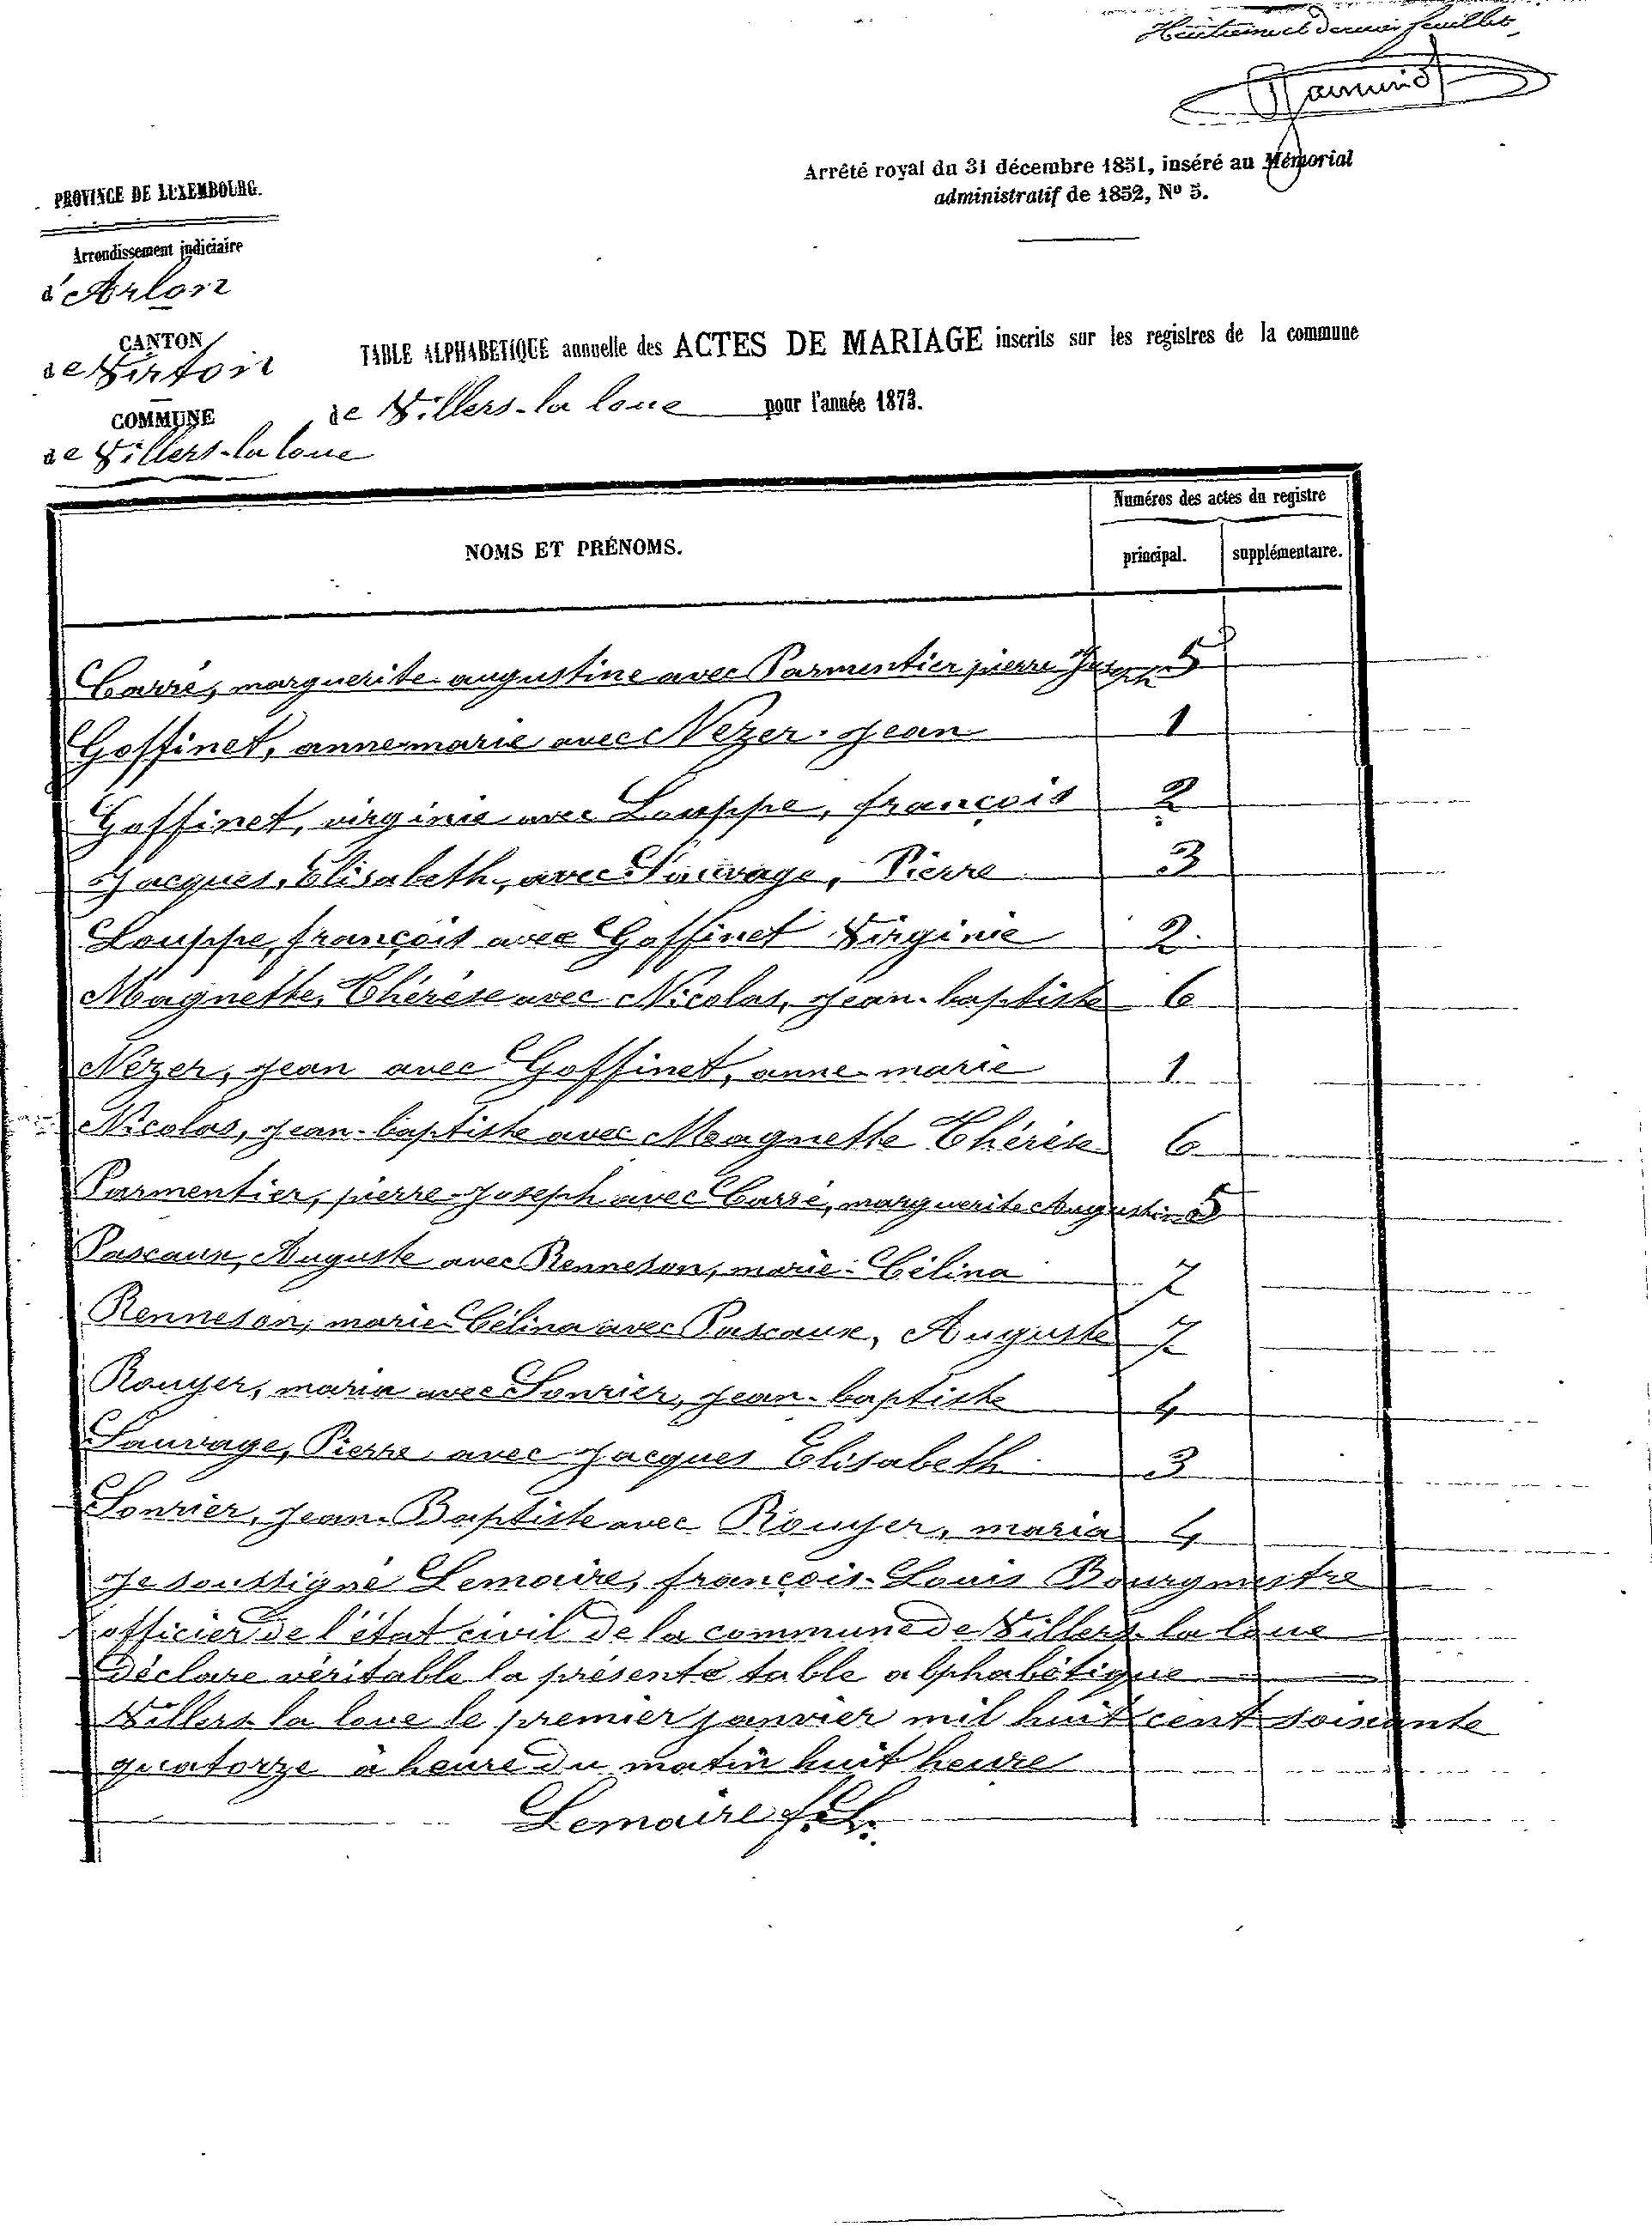 Huitième et dernier feuillet
Arrêté royal du 31 décembre 1851, inséré au Mémorial
administratif de 1852, Nº 5.
PROVINCE DE LUXEMBOURG.
Arrondissement judiciaire
d'Arlon
CANTON
de Virton
TABLE ALPHABETIQUE annuelle des ACTES DE MARIAGE inscrits sur les registres de la commune
de Villers-la loue pour l'année 1873.
COMMUNE
de Villers-la loue
Numéros des actes du registre
NOMS ET PRÉNOMS. principal. supplémentaire.
Carré, marguerite augustine avec Parmentier pierre Joseph 5
Goffinet, anne marie avec Nezer Jean 1
Goffinet, virginie avec Louppe, françois 2
Jacques, Elisabeth, avec Sauvage, Pierre 3
Louppe, françois avec Goffinet Virginie 2
Magnette, Thérèse avec Nicolas, Jean-baptiste 6
Nezer, Jean avec Goffinet, anne-marie 1
Nicolas, Jean-baptiste avec Magnette Thérèse 6
Parmentier, pierre-Joseph avec Carré, marguerite Augustine 5
Pascaux, Auguste avec Renneson, marie-Célina 7
Renneson, marie-Célina avec Pascaux, Auguste 7
Rouyer, maria avec Sonrier, Jean-baptiste 4
Sauvage, Pierre avec Jacques Elisabeth 3
Sonrier, Jean-Baptiste avec Rouyer, maria 4
Je soussigné Lemaire, françois-Louis Bourgmestre
officier de l'état civil de la commune de Villers-la loue
déclare véritable la présente table alphabétique
Villers-la loue le premier janvier mil huit cent soixante
quatorze à heure du matin huit heure
Lemaire f. L.